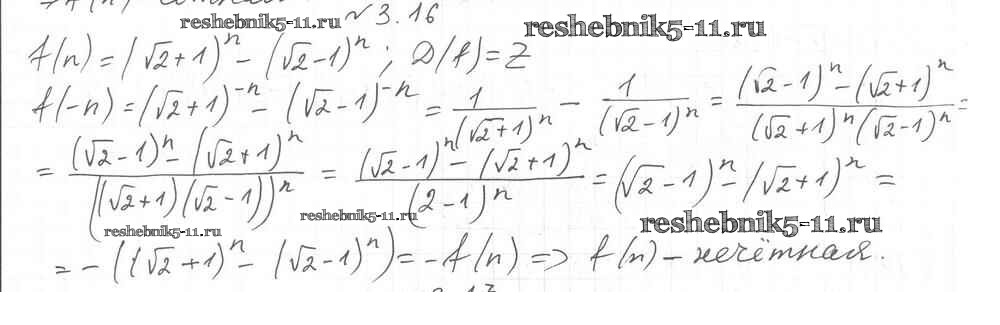 reshebnik5-11.ru №3.16 reshebnik5-11.ru
f(n) = (√2+1)^n - (√2-1)^n ; D(f) = Z
f(-n) = (√2+1)^{-n} - (√2-1)^{-n} = 1/(√2+1)^n - 1/(√2-1)^n = ((√2-1)^n - (√2+1)^n)/((√2+1)^n (√2-1)^n) =
= ((√2-1)^n - (√2+1)^n)/((√2+1)(√2-1))^n = ((√2-1)^n - (√2+1)^n)/(2-1)^n = (√2-1)^n - (√2+1)^n =
reshebnik5-11.ru reshebnik5-11.ru reshebnik5-11.ru
= -((√2+1)^n - (√2-1)^n) = -f(n) => f(n) - нечётная.